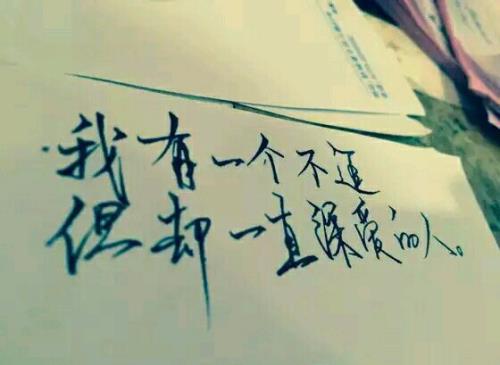 我有一个不追
但却一直深爱的人。